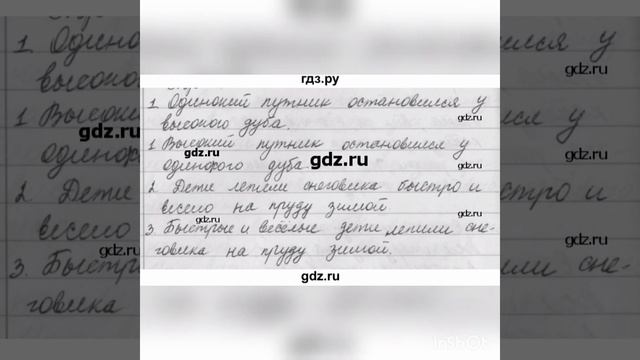 гдз.ру
1. Одинокий путник остановился у
высокого дуба.
1. Высокий путник остановился у
одинокого дуба.
2. Дети лепили снеговика быстро и
весело на пруду зимой
3. Быстрые и весёлые дети лепили сне-
говика на пруду зимой.
gdz.ru
gdz.ru
gdz.ru
gdz.ru
gdz.ru
gdz.ru
gdz.ru
gdz.ru
gdz.ru
gdz.ru
gdz.ru
InShOt